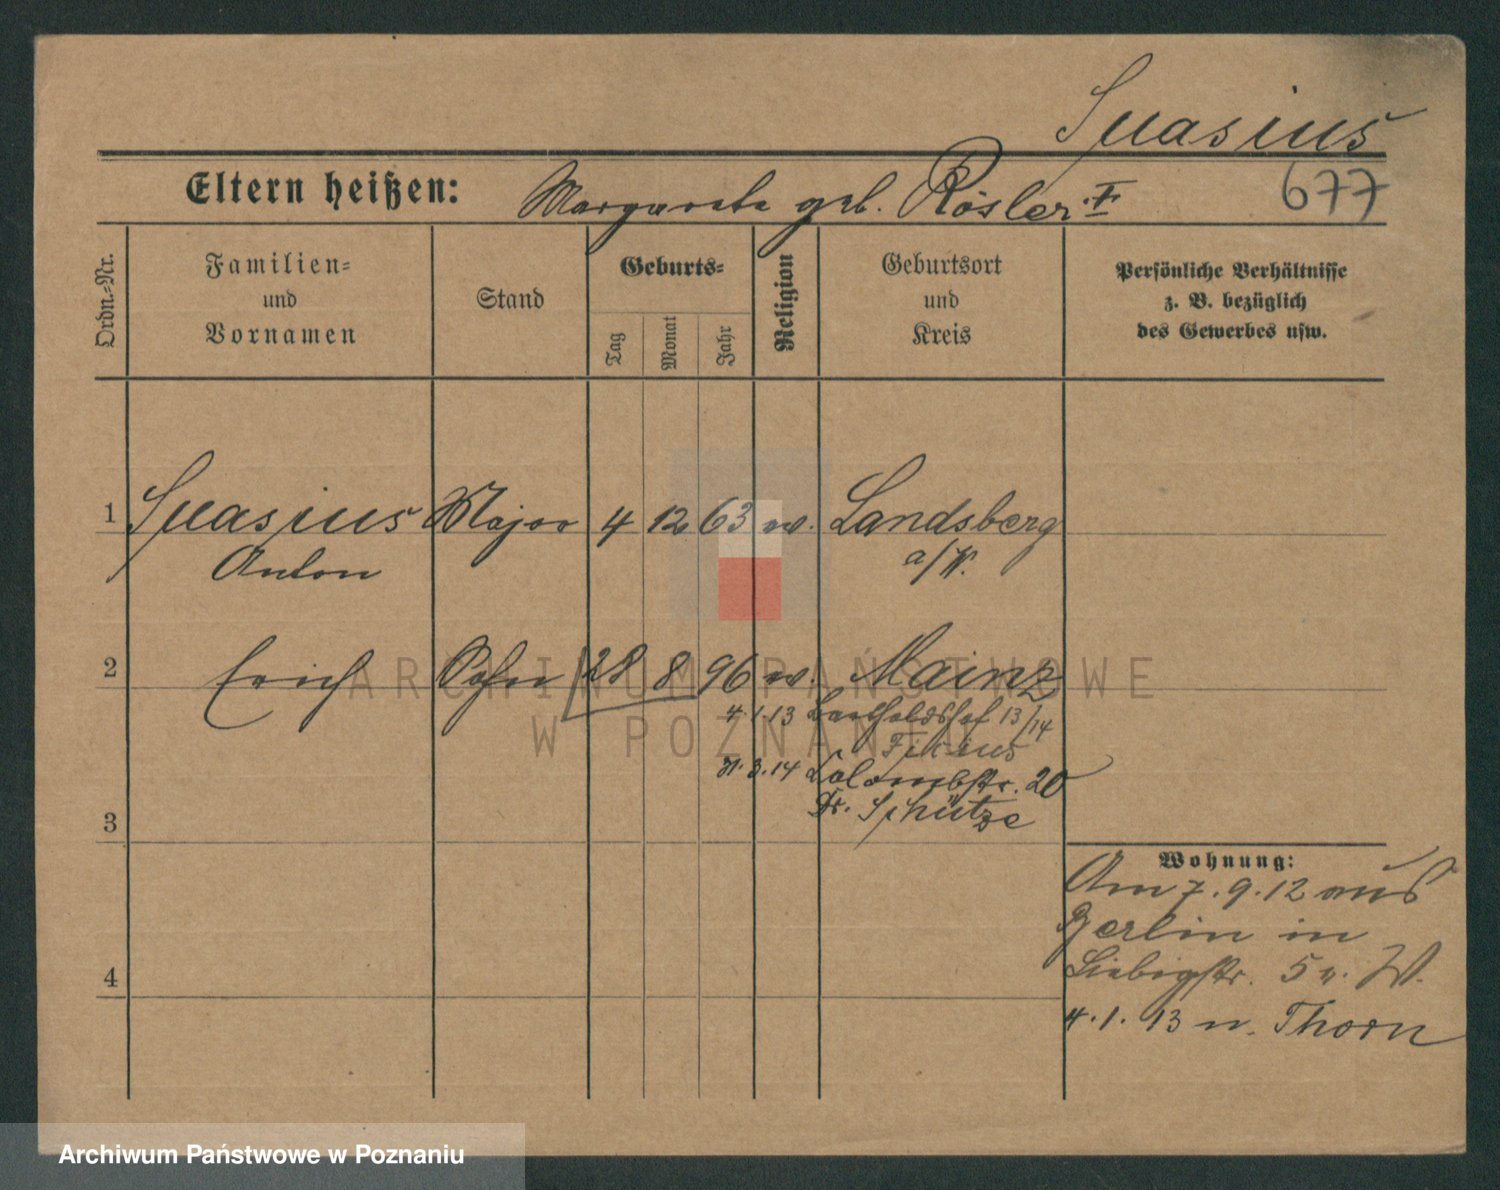 Suasius
Eltern heißen: Margarete geb. Rösler. †
677
Ordn.-Nr.
Familien-
und
Vornamen
Stand
Geburts-
Tag
Monat
Jahr
Religion
Geburtsort
und
Kreis
Persönliche Verhältnisse
z. B. bezüglich
des Gewerbes usw.
1 Suasius Major 4 12 63 ev. Landsberg
Anton a/W.
2 Erich Sohn 28 8 96 ev. Mainz
4.1.13 Bartholdshof 13/14
31.3.14 Colombstr. 20
Dr. Schütze
3
Wohnung:
Am 7.9.12 aus
Berlin in
Liebigstr. 5 v. W.
4
4.1.13 n. Thorn
ARCHIWUM PAŃSTWOWE
W POZNANIU
Archiwum Państwowe w Poznaniu